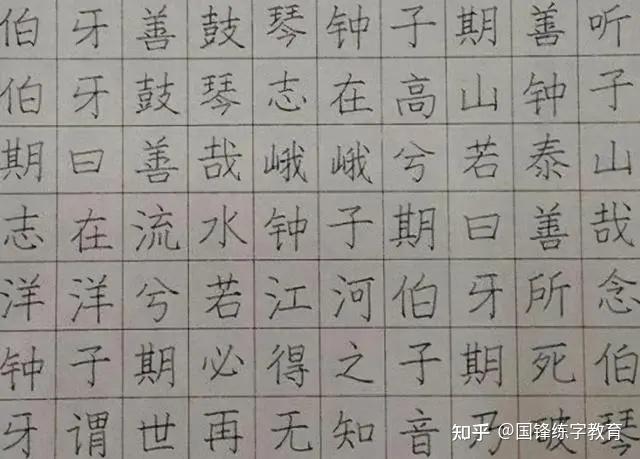 伯牙善鼓琴钟子期善听
伯牙鼓琴志在高山钟子
期曰善哉峨峨兮若泰山
志在流水钟子期曰善哉
洋洋兮若江河伯牙所念
钟子期必得之子期死伯
牙谓世再无知音乃破琴
知乎 @国锋练字教育